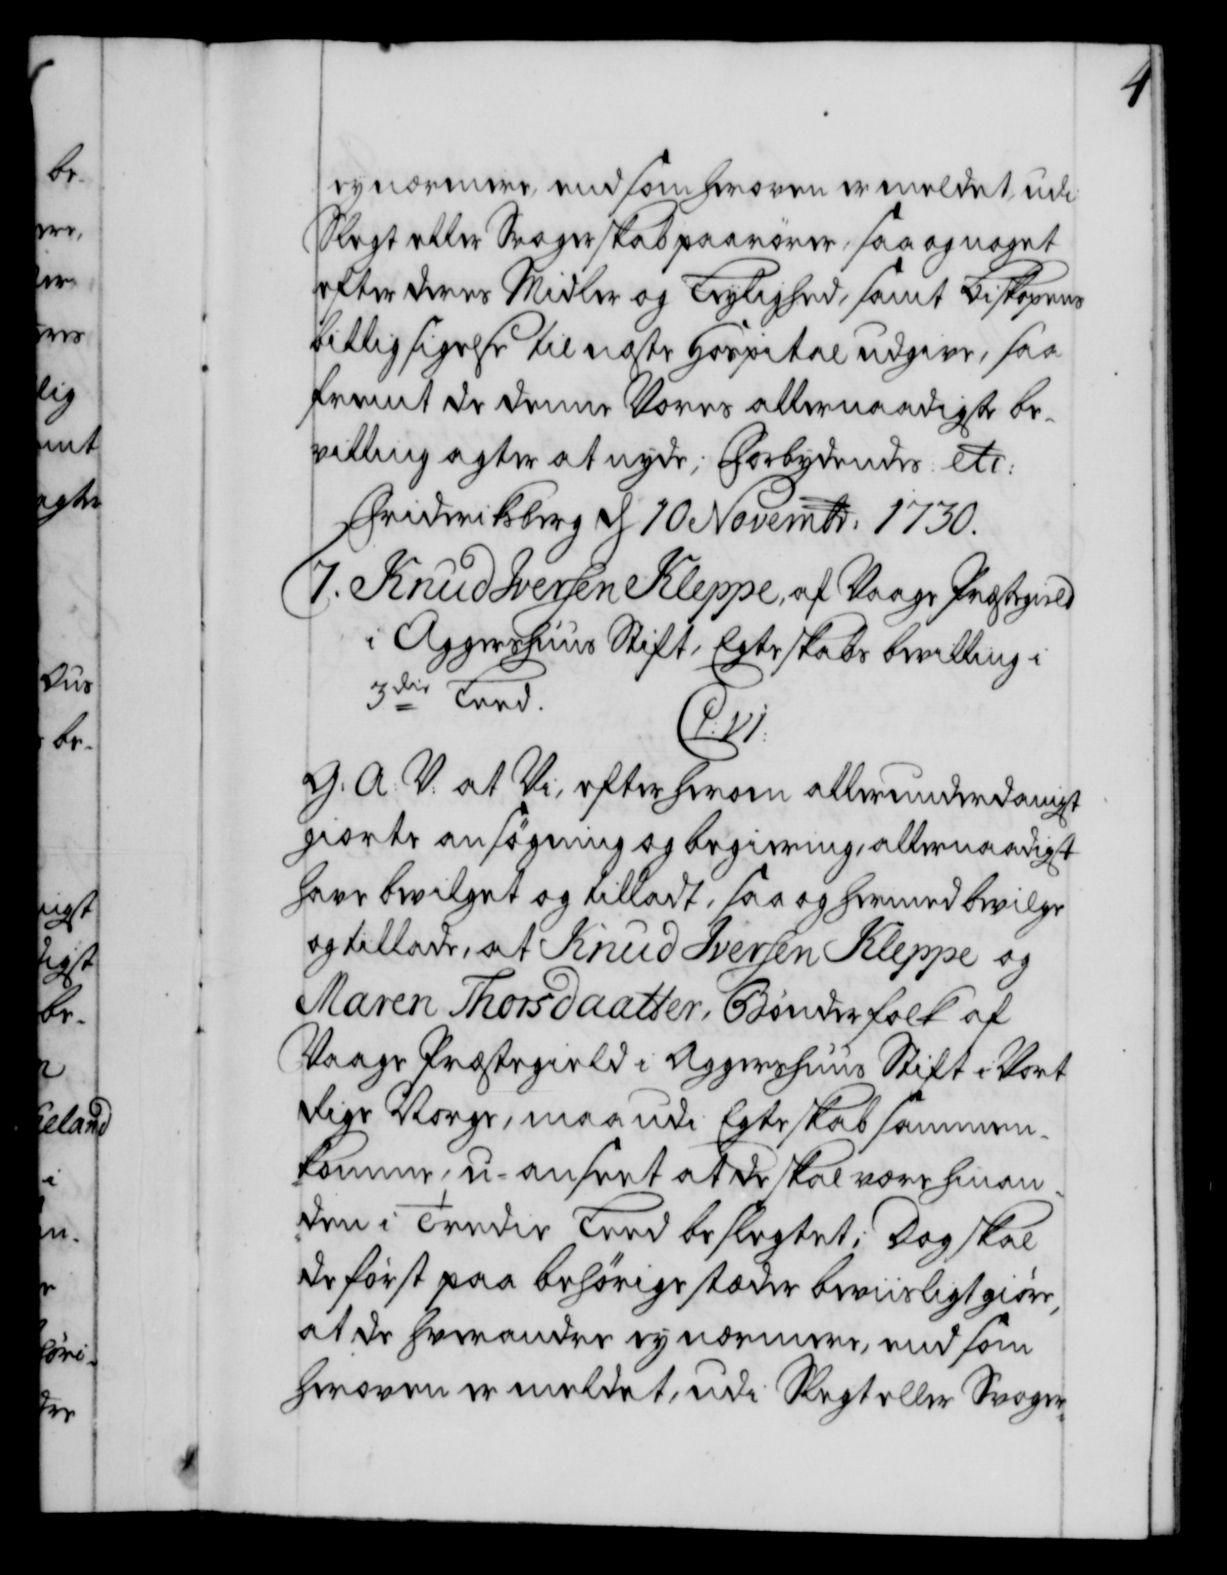 4
ey nærmere, end som heroven er meldet, udi
Slegt eller Svogerskab paarörer, saa og noget
efter deres Midler og Leylighed, samt Biskopens
billig sigelse til næste Hospital udgive, saa
fremt de denne Vores allernaadigste be-
villing agter at nyde; Forbydendes etc:
Friderichsberg d 10 Novembr. 1730.
7. Knud Iversen Kleppe, af Vaage Præstegield
i Aggershuus Stift, Egteskabs bevilling i
3die Leed.
C. VI.
G. A. V. at Vi, efter herom allerunderdanigst
giorte ansøgning og begiering, allernaadigst
have bevilget og tilladt, saa og hermed bevilge
og tillade, at Knud Iversen Kleppe og
Maren Thorsdaatter, Bönderfolk af
Vaage Præstegield i Aggershuus Stift i Vort
Rige Norge, maa udi Egteskab sammen-
komme, u-anseet at de skal være hinan-
den i Tredie Leed beslegtet; Dog skal
de først paa behörige stæder beviisligt giøre,
at de hverandre ey nærmere, end som
heroven er meldet, udi Slegt eller Svoger-
be-
ere,
lig
amt
agter
be-
nigst
digst
be-
eland
i